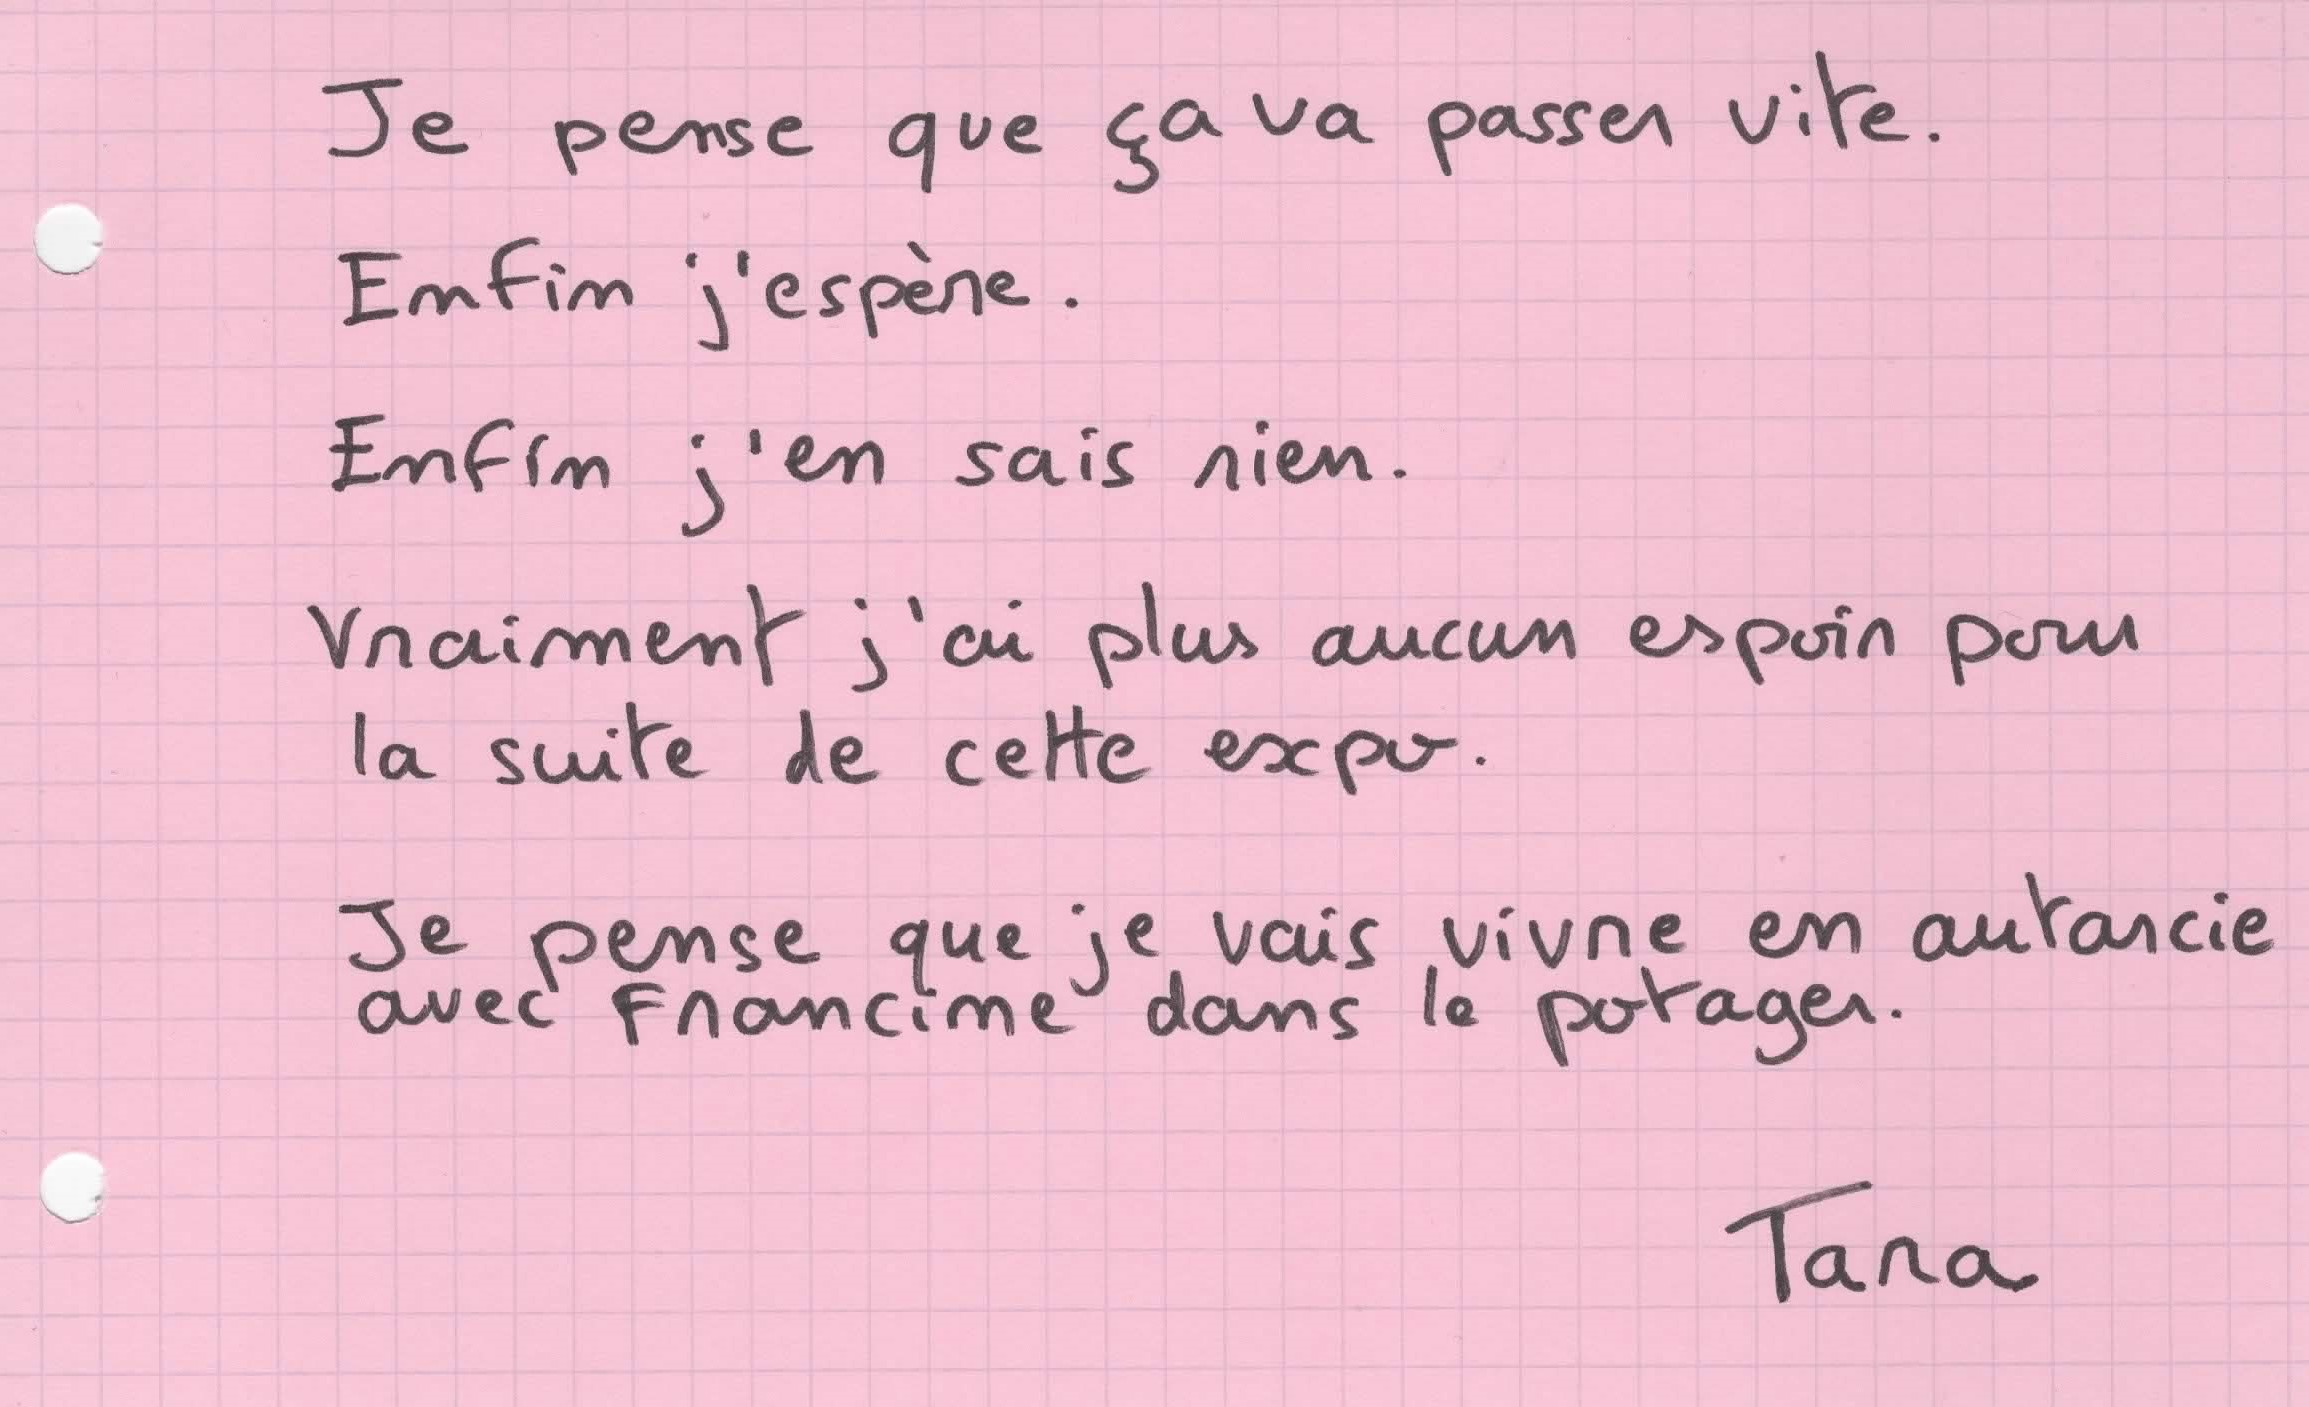 Je pense que ça va passer vite.
Enfin j'espère.
Enfin j'en sais rien.
Vraiment j'ai plus aucun espoir pour
la suite de cette expo.
Je pense que je vais vivre en autarcie
avec Francine dans le potager.
Tara